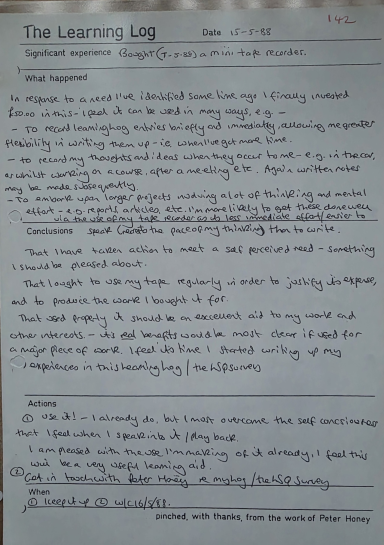 142
The Learning Log Date 15-5-88
Significant experience Bought (7-5-88) a mini tape recorder.
What happened
In response to a need I've identified some time ago I finally invested
£50.00 in this - I feel it can be used in many ways, e.g. -
- To record learning log entries briefly and immediately, allowing me greater
flexibility in writing them up - i.e. when I've got more time.
- to record my thoughts and ideas when they occur to me - e.g. in the car,
or whilst working on a course, after a meeting etc. Again written notes
may be made subsequently.
- To embark upon larger projects involving a lot of thinking and mental
effort - e.g. reports, articles, etc. I'm more likely to get these done well
via the use of my tape recorder as its less immediate effort / easier to
Conclusions speak (onto the pace of my thinking) than to write.
That I have taken action to meet a self perceived need - something
I should be pleased about.
That I ought to use my tape regularly in order to justify its expense,
and to produce the work I bought it for.
That used properly it should be an excellent aid to my work and
other interests - its real benefits would be most clear if used for
a major piece of work. I feel its time I started writing up my
experiences in this learning log / the LSQ survey
Actions
① use it! - I already do, but I most overcome the self consciousness
that I feel when I speak into it / play back.
I am pleased with the use I'm making of it already, I feel this
will be a very useful learning aid.
② Get in touch with Peter Honey re my log / the LSQ survey
When
① I keep it up ② w/c 16/5/88.
pinched, with thanks, from the work of Peter Honey